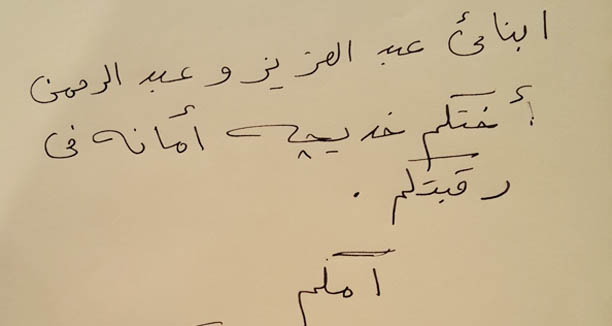 ابنائ عبد العزيز و عبد الرحمن
أختكم خديجه أمانه فى
رقبتكم .
امكم